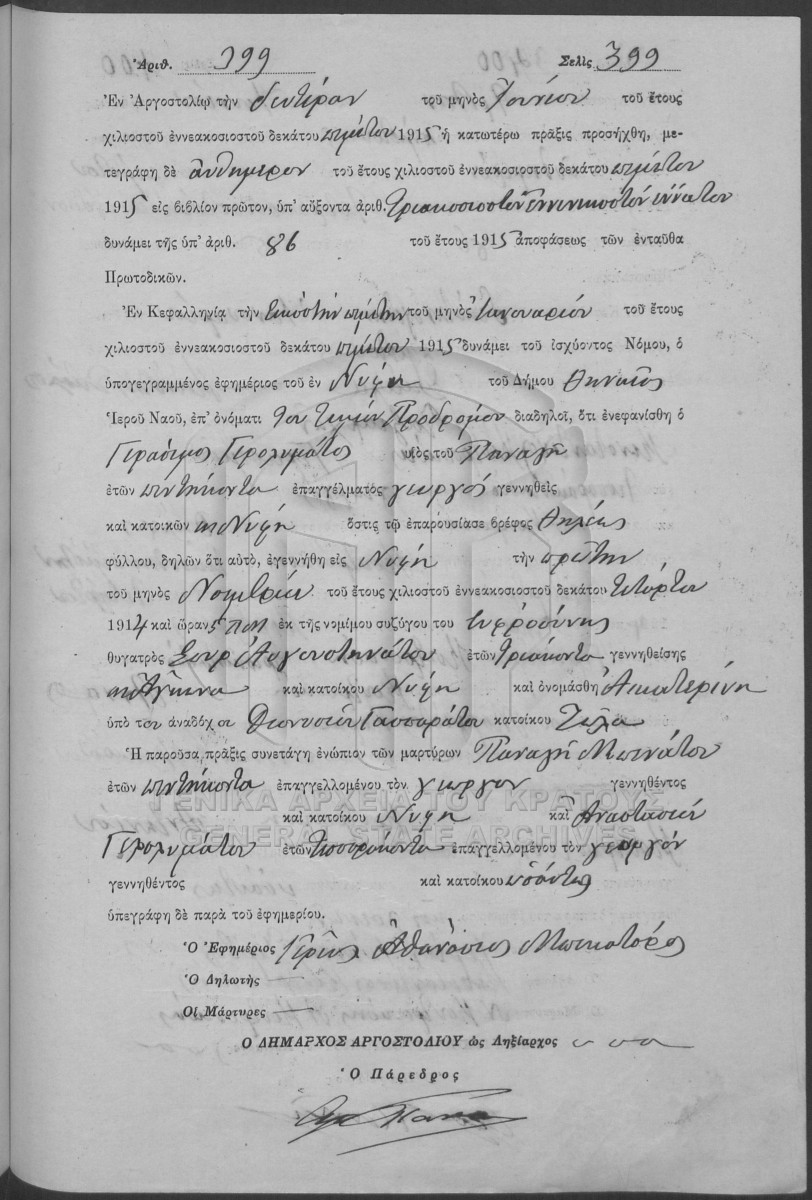 Ἀριθ. 399 Σελὶς 399
Ἐν Ἀργοστολίῳ τὴν δευτέραν τοῦ μηνὸς Ἰουνίου τοῦ ἔτους
χιλιοστοῦ ἐννεακοσιοστοῦ δεκάτου πέμπτου 1915 ἡ κατωτέρω πρᾶξις προσήχθη, με-
τεγράφη δὲ αὐθημερὸν τοῦ ἔτους χιλιοστοῦ ἐννεακοσιοστοῦ δεκάτου πέμπτου
1915 εἰς βιβλίον πρῶτον, ὑπ' αὔξοντα ἀριθ. Τριακοσιοστὸν ἐννενηκοστὸν ἔννατον
δυνάμει τῆς ὑπ' ἀριθ. 86 τοῦ ἔτους 1915 ἀποφάσεως τῶν ἐνταῦθα
Πρωτοδικῶν.
Ἐν Κεφαλληνίᾳ τὴν Εἰκοστὴν πέμπτην τοῦ μηνὸς Ἰανουαρίου τοῦ ἔτους
χιλιοστοῦ ἐννεακοσιοστοῦ δεκάτου πέμπτου 1915 δυνάμει τοῦ ἰσχύοντος Νόμου, ὁ
ὑπογεγραμμένος ἐφημέριος τοῦ ἐν Νύφη τοῦ Δήμου
Ἱεροῦ Ναοῦ, ἐπ' ὀνόματι του Τιμίου Προδρόμου διαδηλοῖ, ὅτι ἐνεφανίσθη ὁ
Γεράσιμος Γερολυμάτος υἱὸς τοῦ Παναγῆ
ἐτῶν πεντήκοντα ἐπαγγέλματος γεωργὸς γεννηθεὶς
καὶ κατοικῶν εἰς Νύφη ὅστις τῷ ἐπαρουσίασε βρέφος θηλέος
φύλλου, δηλῶν ὅτι αὐτὸ, ἐγεννήθη εἰς Νύφη τὴν πρώτην
τοῦ μηνὸς Νοεμβρίου τοῦ ἔτους χιλιοστοῦ ἐννεακοσιοστοῦ δεκάτου Τετάρτου
1914 καὶ ὥραν 5 πμ ἐκ τῆς νομίμου συζύγου του Εὐφροσύνης
θυγατρὸς Σπυρ Αὐγουστινάτου ἐτῶν Τριάκοντα γεννηθείσης
καὶ κατοίκου Νύφη καὶ ὀνομάσθη Αἰκατερίνη
ὑπὸ τοῦ ἀναδόχου Διονυσίου Γασπαράτου κατοίκου
Ἡ παροῦσα πρᾶξις συνετάγη ἐνώπιον τῶν μαρτύρων Παναγῆ Μπενάτου
ἐτῶν πεντήκοντα ἐπαγγελλομένου τὸν γεωργὸν γεννηθέντος
καὶ κατοίκου Νύφη καὶ Ἀναστασίου
Γερολυμάτου ἐτῶν Τεσσαράκοντα ἐπαγγελλομένου τὸν γεωργὸν
γεννηθέντος καὶ κατοίκου ὡσαύτως
ὑπεγράφη δὲ παρὰ τοῦ ἐφημερίου.
Ὁ Ἐφημέριος Ἱερεὺς Ἀθανάσιος
Ὁ Δηλωτὴς —
Οἱ Μάρτυρες —
Ὁ ΔΗΜΑΡΧΟΣ ΑΡΓΟΣΤΟΛΙΟΥ ὡς Ληξίαρχος
Ὁ Πάρεδρος
ΓΕΝΙΚΑ ΑΡΧΕΙΑ ΤΟΥ ΚΡΑΤΟΥΣ
GENERAL STATE ARCHIVES